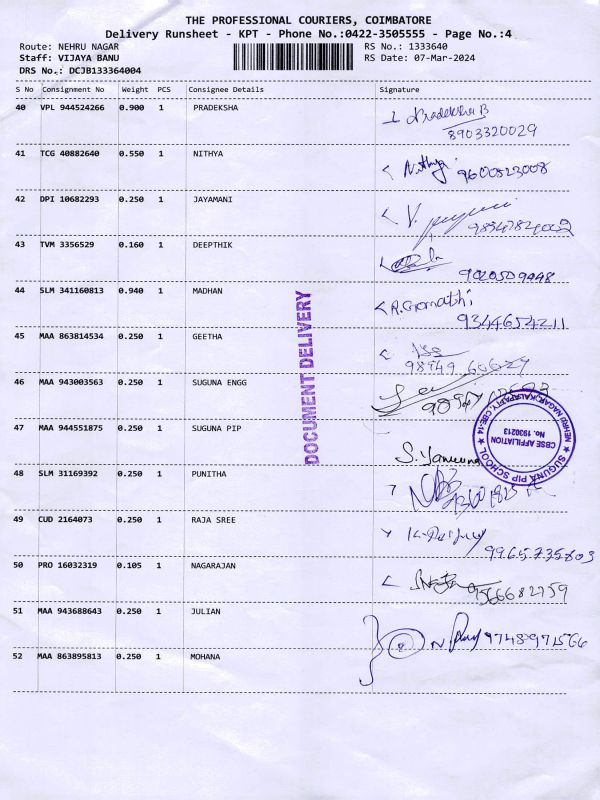 THE PROFESSIONAL COURIERS, COIMBATORE
Delivery Runsheet - KPT - Phone No.:0422-3505555 - Page No.:4
Route: NEHRU NAGAR RS No.: 1333640
Staff: VIJAYA BANU RS Date: 07-Mar-2024
DRS No.: DCJB133364004
S No Consignment No Weight PCS Consignee Details Signature
40 VPL 944524266 0.900 1 PRADEKSHA Pradeksha B
8903320029
41 TCG 40882640 0.550 1 NITHYA Nithya 9600823008
42 DPI 10682293 0.250 1 JAYAMANI V.
43 TVM 3356529 0.160 1 DEEPTHIK
9020509448
44 SLM 341160813 0.940 1 MADHAN R.Gomathi
9344654211
45 MAA 863814534 0.250 1 GEETHA
98949 60627
46 MAA 943003563 0.250 1 SUGUNA ENGG
47 MAA 944551875 0.250 1 SUGUNA PIP S. Yamuna
48 SLM 31169392 0.250 1 PUNITHA
49 CUD 2164073 0.250 1 RAJA SREE
9965735803
50 PRO 16032319 0.105 1 NAGARAJAN
9566682759
51 MAA 943688643 0.250 1 JULIAN
N 9748971566
52 MAA 863895813 0.250 1 MOHANA
DOCUMENT DELIVERY
SUGUNA PIP SCHOOL
NEHRU NAGAR, KALAPATTY, CBE-14
CBSE AFFILIATION
No. 1930213